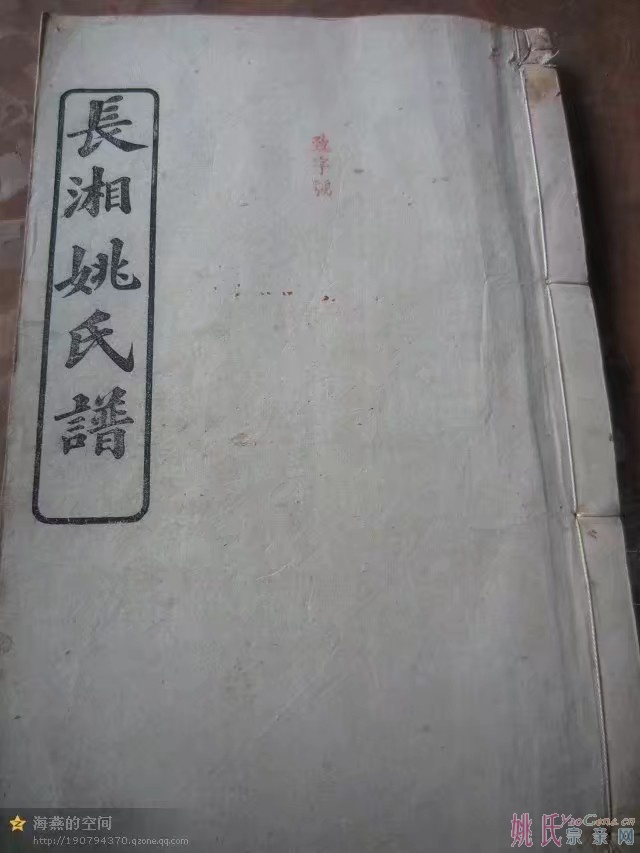 長湘姚氏譜
海燕的空间
http://190794370.qzone.qq.com
姚氏宗亲网
YaoGens.cn